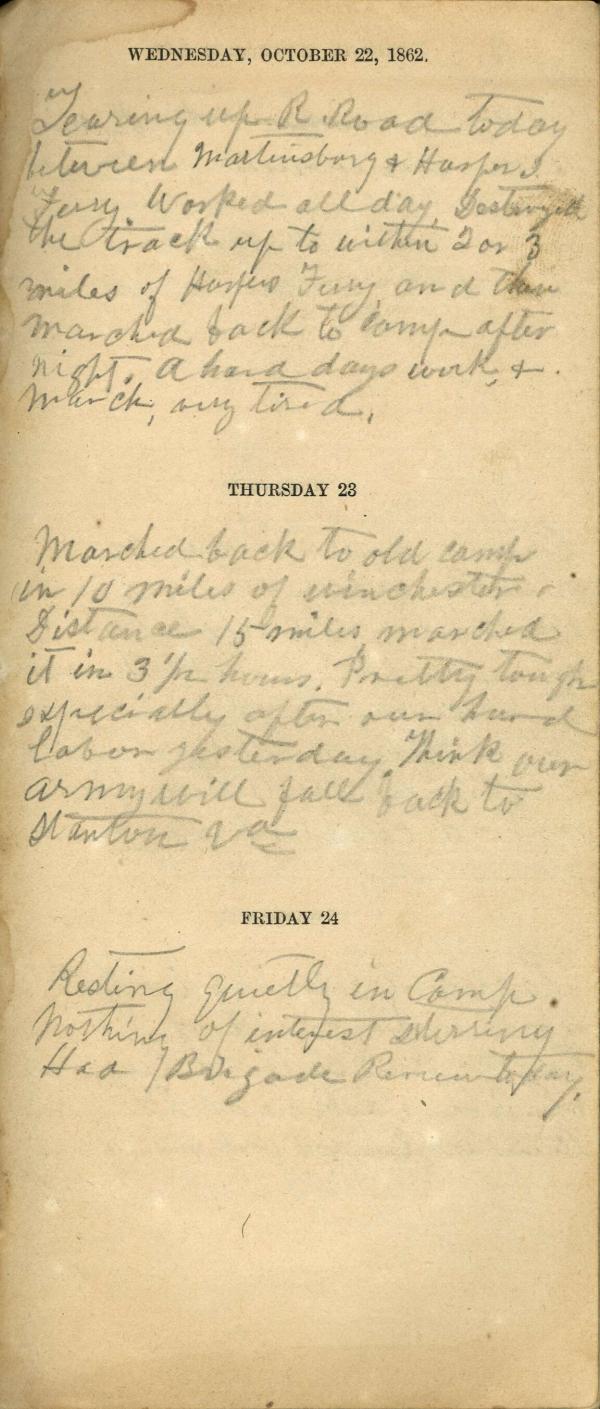 WEDNESDAY, OCTOBER 22, 1862.
Tearing up R Road today
between Martinsburg & Harpers
Ferry. Worked all day, Destroyed
the track up to within 2 or 3
miles of Harpers Ferry and then
marched back to camp after
night. A hard days work, &
march, very tired.
THURSDAY 23
Marched back to old camp
in 10 miles of winchester.
Distance 15 miles marched
it in 3 1/2 hours. Pretty tough
especially after our hard
labor yesterday. Think our
army will fall back to
Stanton Va
FRIDAY 24
Resting quietly in Camp.
Nothing of interest stirring
Had Brigade Review today,